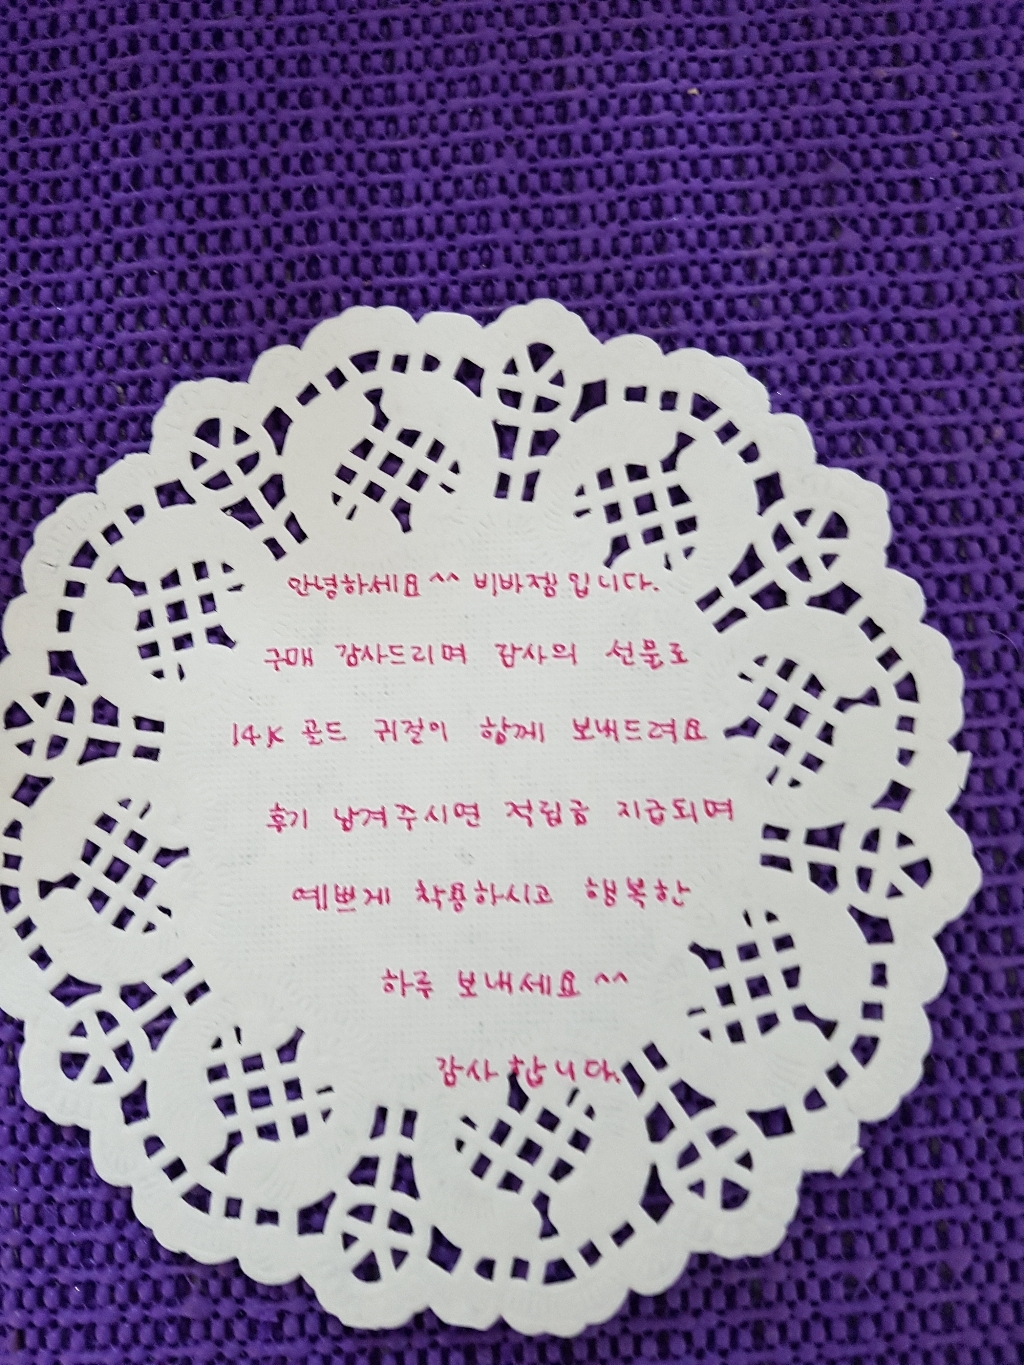 안녕하세요 ^^ 비바젬입니다.
구매 감사드리며 감사의 선물로
14K 골드 귀걸이 함께 보내드려요
후기 남겨주시면 적립금 지급되며
예쁘게 착용하시고 행복한
하루 보내세요 ^^
감사합니다.